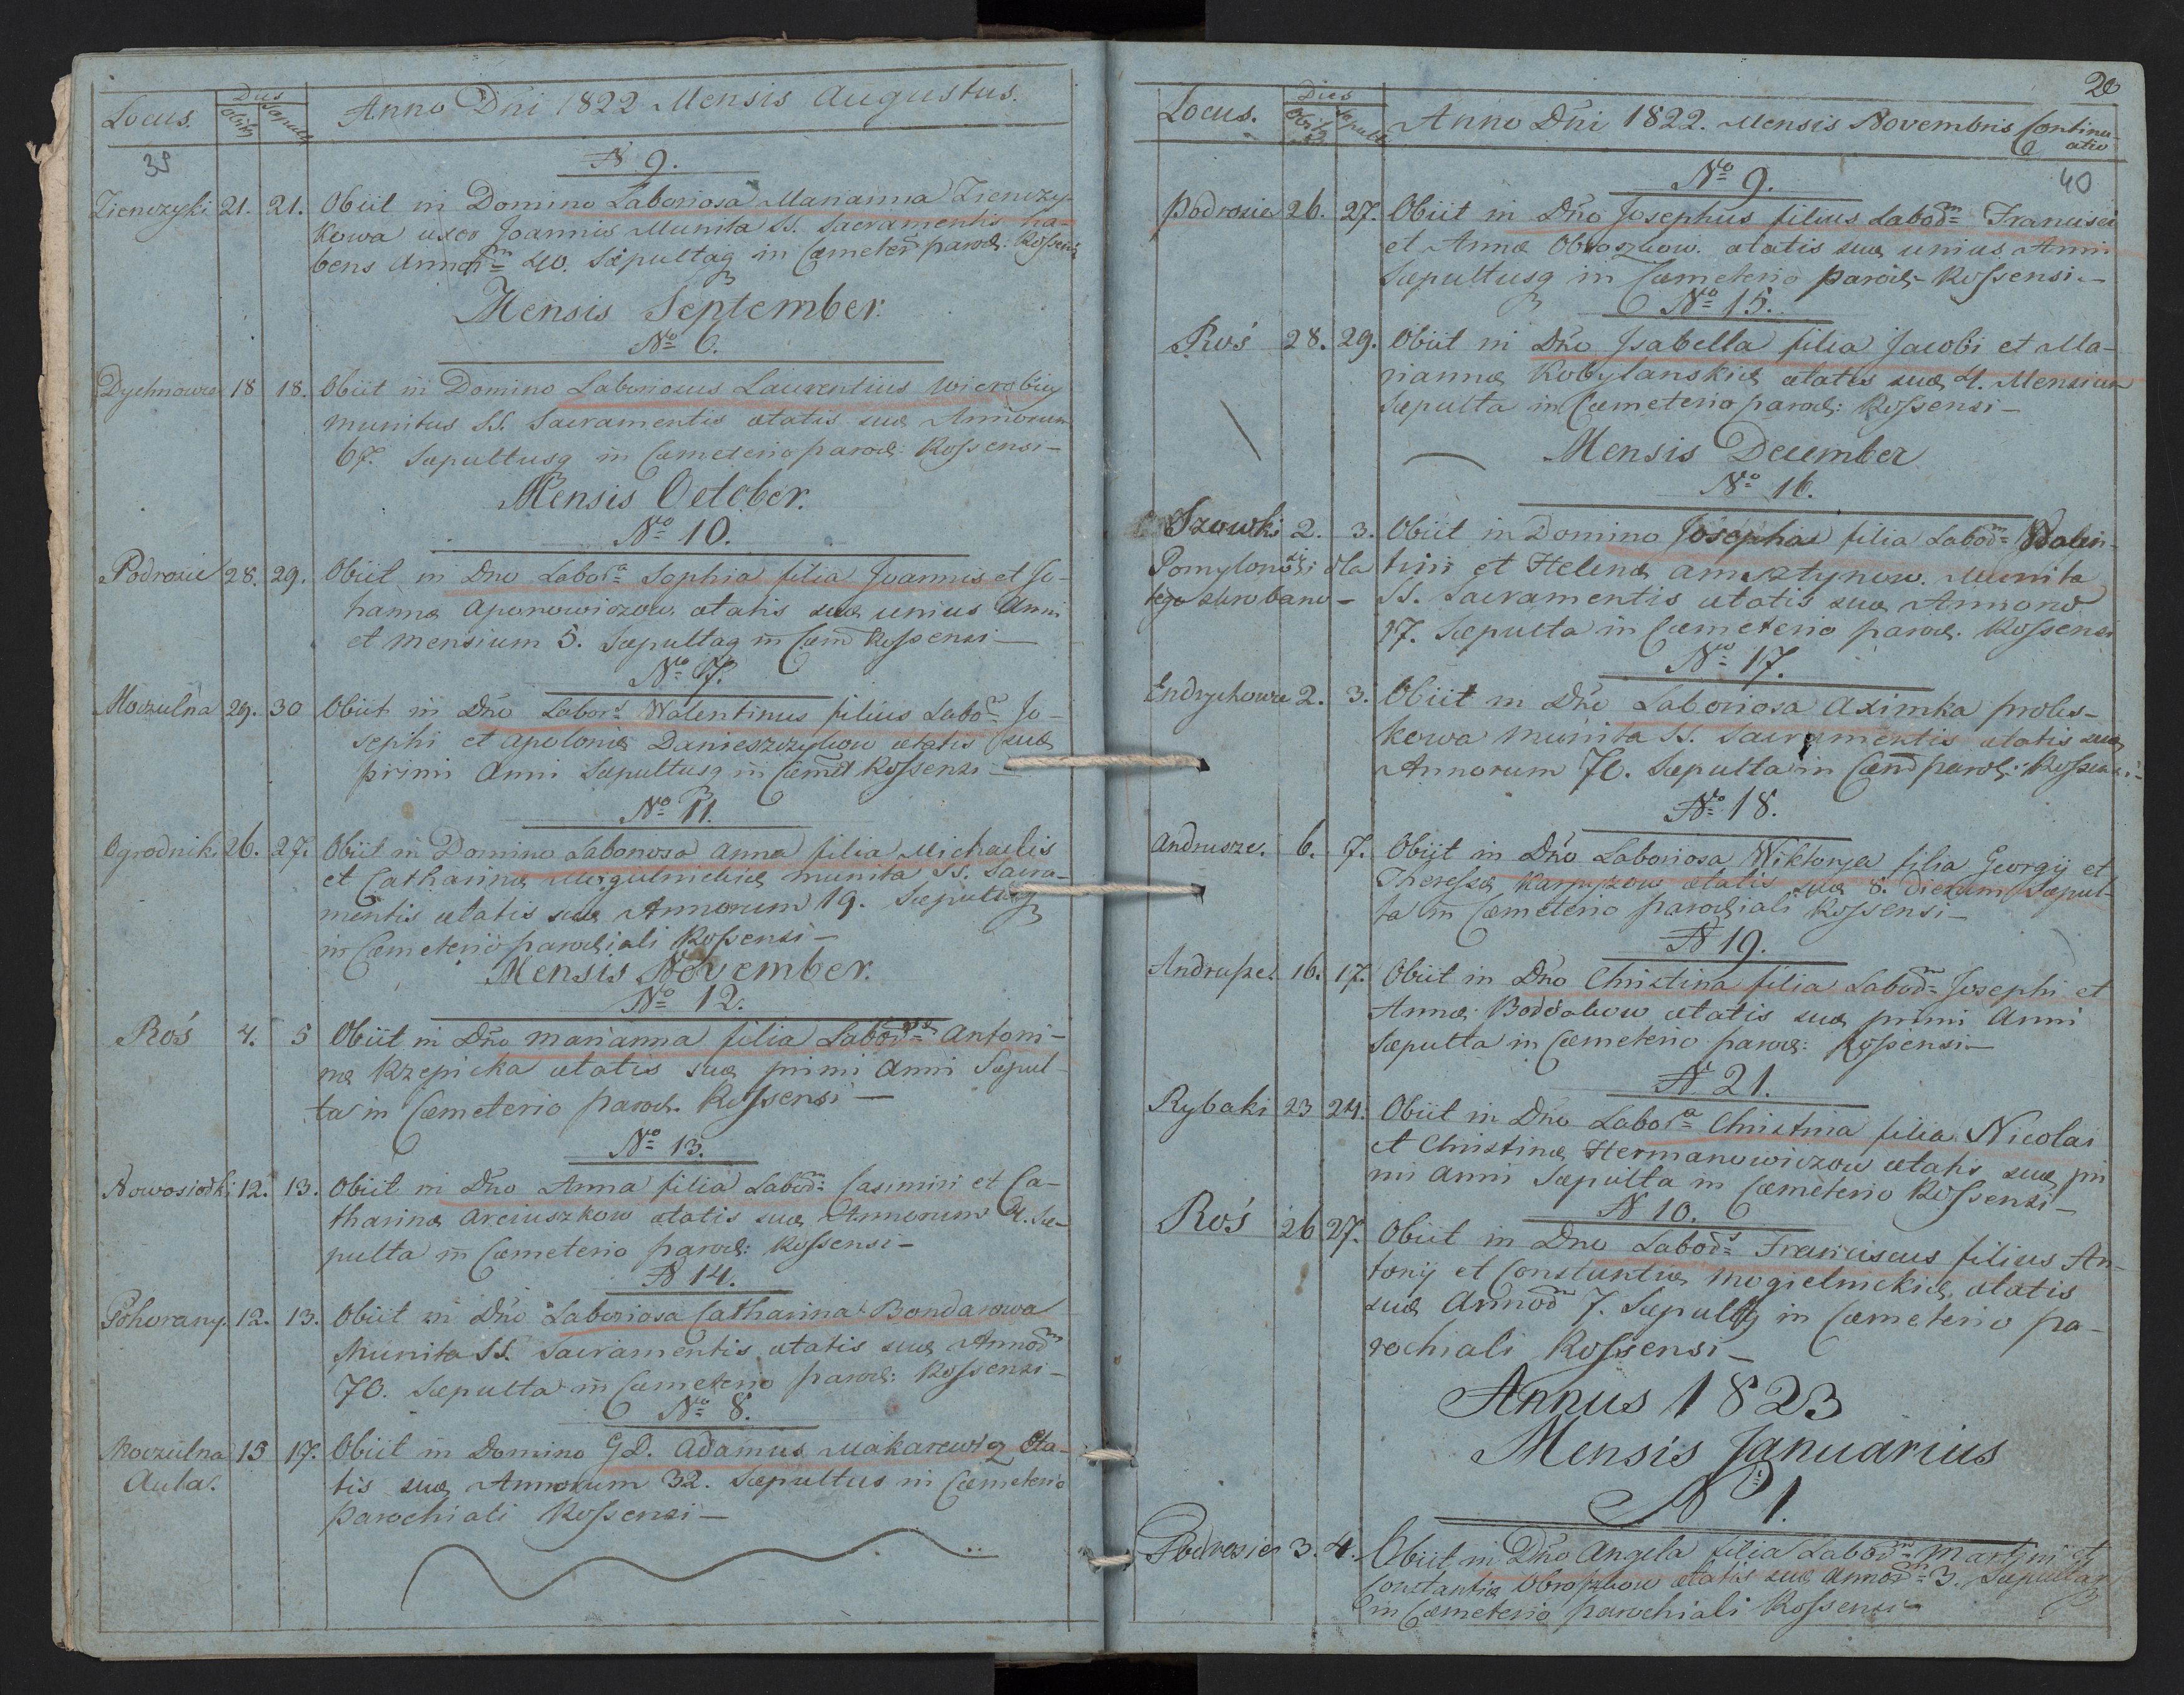 Locus. Dies Obitq Sepult Anno Dńi 1822 Mensis Augustus.
39
N 9.
Zienczyki 21. 21. Obiit in Domino Laboriosa Marianna Zienczy-
kowa uxor Joannis Munita SS. Sacramentis ha-
bens Annor̄m 40. Sæpultaq in Cæmeter paroch: Rossensi
Mensis September.
No 6.
Dychnowce 18 18. Obiit in Domino Laboriosus Laurentius Wierobiey
munitus SS. Sacramentis ætatis suæ Annorum
67. Sæpultusq in Cæmeterio paroch: Rossensi-
Mensis October.
No 10.
Podrosie 28. 29. Obiit in Dno Labora Sophia filia Joannis et Jo-
hannæ Aponowiczow ætatis suæ unius Anni
et mensium 5. Sæpultaq in Cæm Rossensi-
No 7.
Moczulna 29. 30 Obiit in Dńo Labors Walentinus filius Labor Jo-
sephi et Apoloniæ Danieszczykow ætatis suæ
primi Anni Sæpultusq in Cæmet Rossensi-
No 11.
Ogrodniki 26. 27. Obiit in Domino Laboriosa Anna filia Michaelis
et Catharinæ munita SS. Sacra-
mentis ætatis suæ Annorum 19. Sæpultaq
in Cæmeterio parochiali Rossensi-
Mensis November.
No 12.
Roś 4. 5 Obiit in Dńo Marianna filia Labor Antoni-
næ Rzepicka ætatis suæ primi Anni Sæpul-
ta in Cæmeterio paroch. Rossensi-
No 13.
Nowosiołki 12. 13. Obiit in Dńo Anna filia Labor: Casimiri et Ca-
tharinæ Arciuszkow ætatis suæ Annorum 4. Sæ-
pulta in Cæmeterio paroch: Rossensi-
N 14.
Pohorany. 12. 13. Obiit in Dńo Laboriosa Catharina Bondarowa
Munita SS. Sacramentis ætatis suæ Annorm
70. Sæpulta in Cæmeterio paroch: Rossensi-
No 8.
Moczulna 15 17. Obiit in Domino G.D. Adamus Makarewicz Æta-
Aula. tis suæ Annorum 32. Sæpultus in Cæmeterio
Parochiali Rossensi-
20
Locus. Dies Obitq Sepult Anno Dńi 1822. Mensis Novembris Continu-
atio
40
No 9.
Podrosie 26. 27. Obiit in Dńo Josephus filius Laborm Francisci
et Annæ Obroszkow. ætatis suæ unius Anni
Sæpultusq in Cæmeterio Paroch- Rossensi-
No 15.
Roś 28. 29. Obiit in Dńo Isabella filia Jacobi et Ma-
riannæ Kobylanskich ætatis suæ 4. Mensium
Sæpulta in Cæmeterio paroch: Rossensi-
Mensis December
No 16.
Szowki 2. 3. Obiit in Domino Josepha filia Laborm Walen-
Pomylono się dla tini et Helenæ Amsztynow. Munita
tego skrobano- SS. Sacramentis ætatis suæ Annor
17. Sæpulta in Cæmeterio paroch. Rossensi
No 17.
Endrychowce 2. 3. Obiit in Dńo Laboriosa Aximka proles-
kowa Munita SS. Sacramentis ætatis suæ
Annorum 70. Sæpulta in Cæm paroch: Rossensi-
No 18.
Andrusze. 6. 7. Obiit in Dńo Laboriosa Wiktorya filia Georgij et
Theressæ Karpyzow ætatis suæ 8. Dierum Sæpul-
ta in Cæmeterio parochiali Rossensi-
N 19.
Andrusze. 16. 17. Obiit in Dńo Christina filia Laborm Josephi et
Annæ ætatis suæ primi Anni
Sæpulta in Cæmeterio paroch: Rossensi-
N 21.
Rybaki 23 24. Obiit in Dńo Labora Christina filia Nicolai
et Christinæ Hermanowiczow ætatis suæ pri
mi Anni Sæpulta in Cæmeterio Rossensi-
N 10.
Roś 26 27. Obiit in Dno Labors Franciscus filius An-
tonij et Constantiæ Mogielnickich ætatis
suæ Annorm 7. Sæpultq in Cæmeterio pa-
rochiali Rossensi-
Annus 1823
Mensis Januarius
No 1.
Podrosie 3. 4. Obiit in Dńo Angela filia Laborm Martini et
Constantiæ Obroszkow ætatis suæ Annorm 3. Sæpultaq
in Cæmeterio parochiali Rossensi-